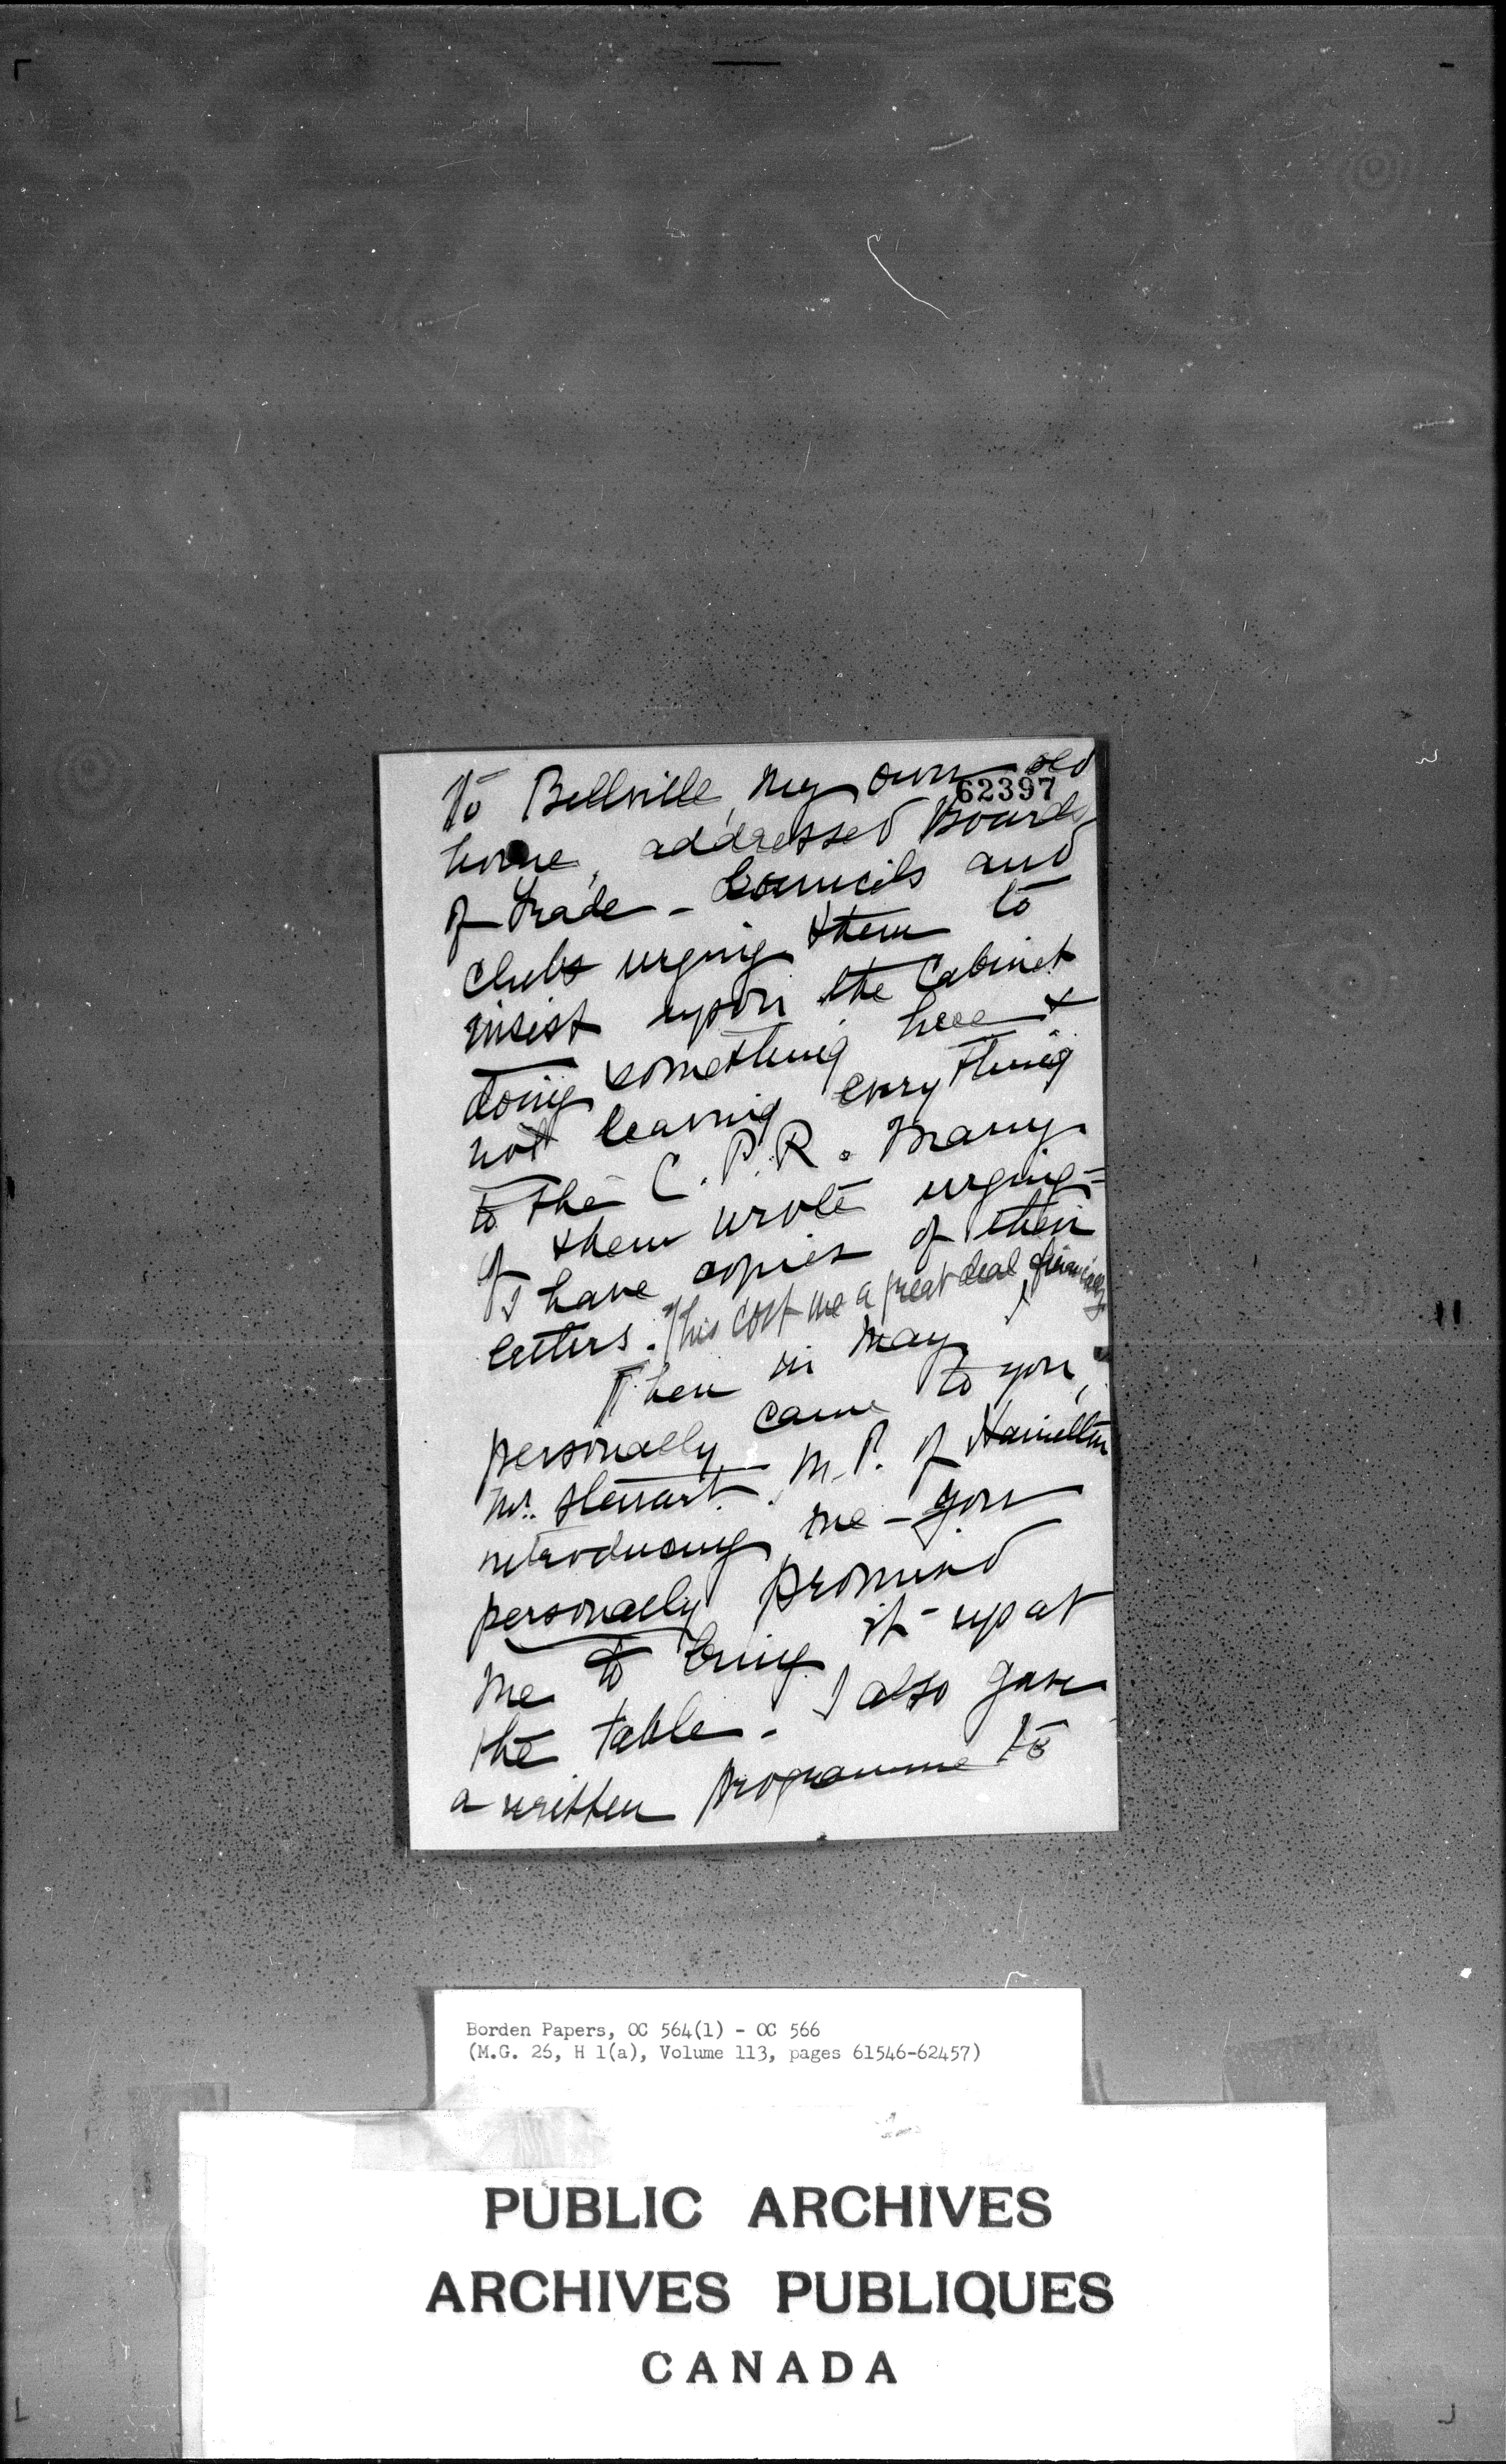 to Bellville, my own old
62397
home, addressed Boards
of Trade - Councils and
Clubs urging them to
insist upon the Cabinet
doing something here &
not leaving everything
to the C.P.R. Many
of them wrote urging -
I have copies of their
letters. This cost me a great deal financially.
Then in May I
personally came to you,
Mr. Stewart. M.P. of Hamilton
introducing me - you
personally promised
me to bring it up at
the table - I also gave
a written programme to
Borden Papers, OC 564(1) - OC 566
(M.G. 26, H 1(a), Volume 113, pages 61546-62457)
PUBLIC ARCHIVES
ARCHIVES PUBLIQUES
CANADA